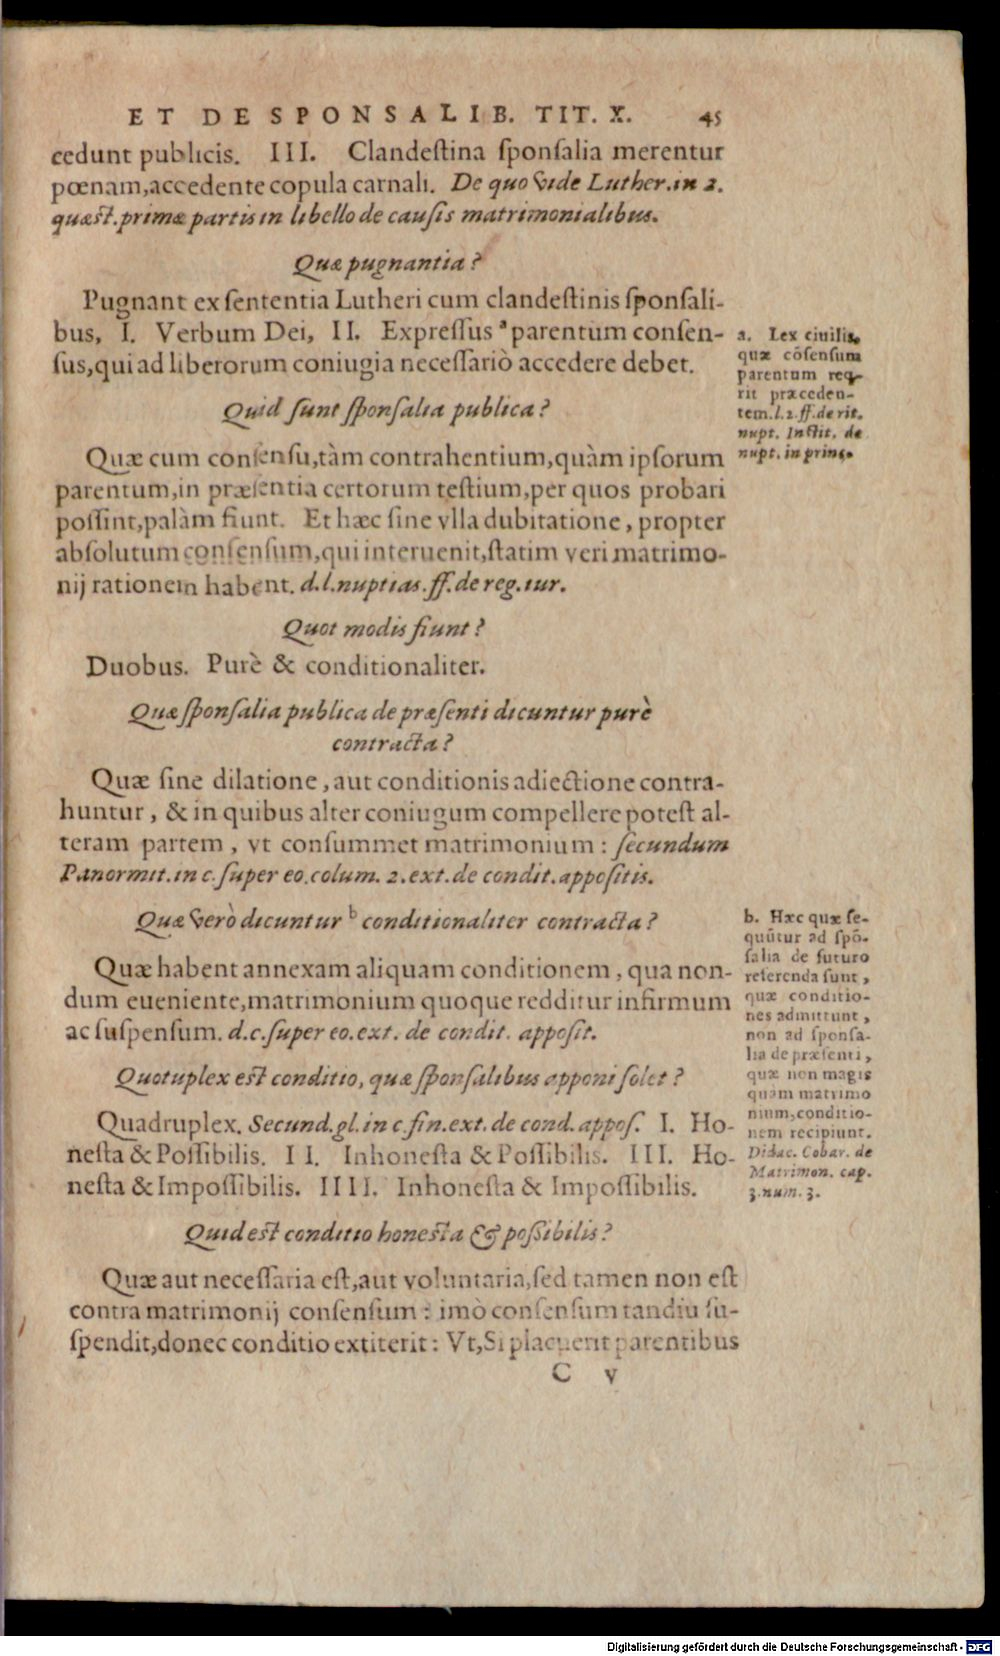 ET DE SPONSALIB. TIT. X. 45
cedunt publicis. III. Clandestina sponsalia merentur
pœnam, accedente copula carnali. De quo vide Luther. in 2.
quæst. primæ partis in libello de causis matrimonialibus.
Quæ pugnantia?
Pugnant ex sententia Lutheri cum clandestinis sponsali-
bus, I. Verbum Dei, II. Expressus ᵃ parentum consen-
sus, qui ad liberorum coniugia necessariò accedere debet.
a. Lex ciuilis,
quæ cōsensum
parentum req̃-
rit præceden-
tem. l. 2. ff. de rit.
nupt. Instit. de
nupt. in princ.
Quid sunt sponsalia publica?
Quæ cum consensu, tàm contrahentium, quàm ipsorum
parentum, in præsentia certorum testium, per quos probari
possint, palàm fiunt. Et hæc sine vlla dubitatione, propter
absolutum consensum, qui interuenit, statim veri matrimo-
nij rationem habent. d. l. nuptias. ff. de reg. iur.
Quot modis fiunt?
Duobus. Purè & conditionaliter.
Quæ sponsalia publica de præsenti dicuntur purè
contracta?
Quæ sine dilatione, aut conditionis adiectione contra-
huntur, & in quibus alter coniugum compellere potest al-
teram partem, vt consummet matrimonium: secundum
Panormit. in c. super eo. colum. 2. ext. de condit. appositis.
Quæ verò dicuntur ᵇ conditionaliter contracta?
Quæ habent annexam aliquam conditionem, qua non-
dum eueniente, matrimonium quoque redditur infirmum
ac suspensum. d. c. super eo. ext. de condit. apposit.
b. Hæc quæ se-
quūtur ad spō-
salia de futuro
referenda sunt,
quæ conditio-
nes admittunt,
non ad sponsa-
lia de præsenti,
quæ non magis
quàm matrimo
nium, conditio-
nem recipiunt.
Didac. Cobar. de
Matrimon. cap.
3. num. 3.
Quotuplex est conditio, quæ sponsalibus apponi solet?
Quadruplex. Secund. gl. in c. fin. ext. de cond. appos. I. Ho-
nesta & Possibilis. II. Inhonesta & Possibilis. III. Ho-
nesta & Impossibilis. IIII. Inhonesta & Impossibilis.
Quid est conditio honesta & possibilis?
Quæ aut necessaria est, aut voluntaria, sed tamen non est
contra matrimonij consensum: imò consensum tandiu su-
spendit, donec conditio extiterit: Vt, Si placuerit parentibus
C v
Digitalisierung gefördert durch die Deutsche Forschungsgemeinschaft - DFG